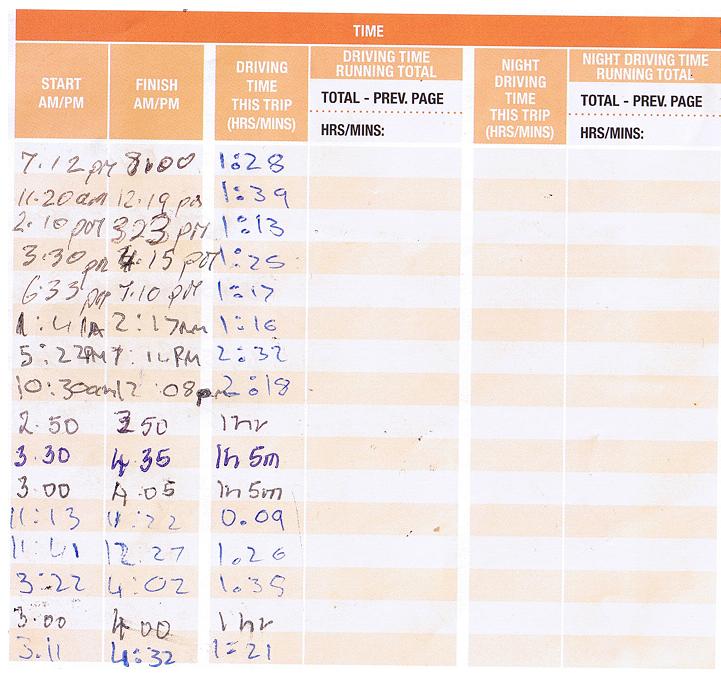 TIME
START AM/PM FINISH AM/PM DRIVING TIME THIS TRIP (HRS/MINS) DRIVING TIME RUNNING TOTAL NIGHT DRIVING TIME THIS TRIP (HRS/MINS) NIGHT DRIVING TIME RUNNING TOTAL
TOTAL - PREV. PAGE TOTAL - PREV. PAGE
HRS/MINS: HRS/MINS:
7.12 pm 8.00 1:28
11.20am 12.19 pm 1:39
2.10 pm 323 pm 1:13
3.30 pm 4.15 pm 1:25
6:33 pm 7.10 pm 1:17
1:41A 2:17AM 1:16
5:22PM 2:32
10:30am 12:08pm 2:18
2.50 3 50 1hr
3.30 4.35 1h 5m
3.00 4.05 1h 5m
11:13 11:22 0.09
11:41 12:27 1.26
3:22 4:02 1:35
3.00 4 00 1hr
3.11 4:32 1:21